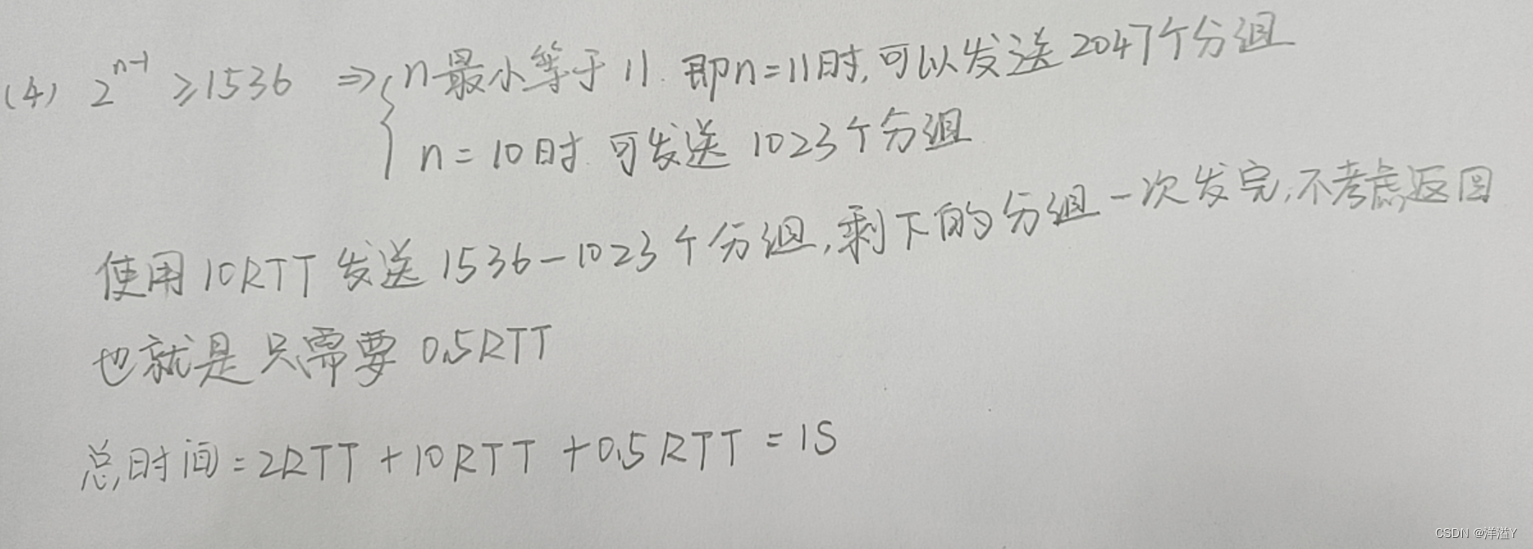 (4) 2^{n-1} ≥1536 ⇒ { n最小等于11. 即n=11时,可以发送2047个分组
n=10时 可发送 1023个分组
使用10RTT 发送1536-1023个分组,剩下的分组一次发完,不考虑返回
也就是只需要 0.5RTT
总时间=2RTT+10RTT+0.5RTT=1S
CSDN @洋溢Y